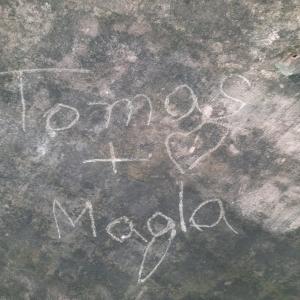 Tomas
+ ♡
Magla